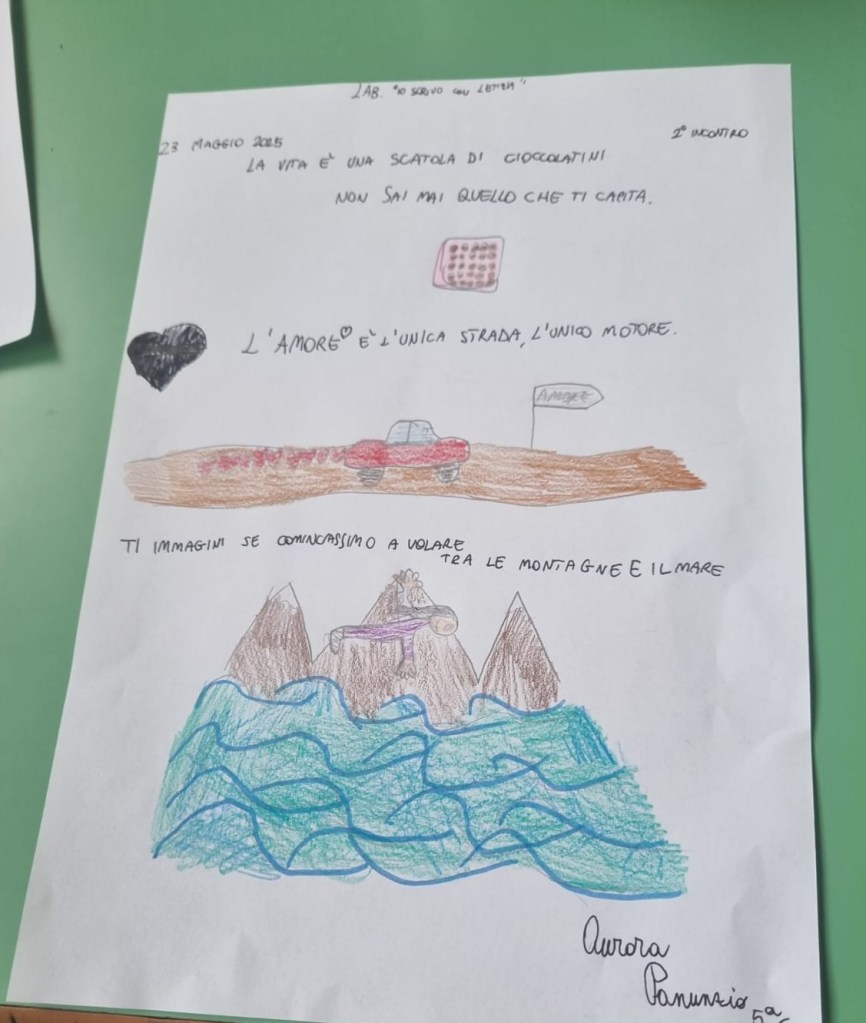 LAB. "IO SCRIVO CON LETIZIA"
23 MAGGIO 2025
2° INCONTRO
LA VITA E' UNA SCATOLA DI CIOCCOLATINI
NON SAI MAI QUELLO CHE TI CAPITA.
L'AMORE E' L'UNICA STRADA, L'UNICO MOTORE.
AMORE
TI IMMAGINI SE COMINCASSIMO A VOLARE
TRA LE MONTAGNE E IL MARE
Aurora
Panunzio 5ª